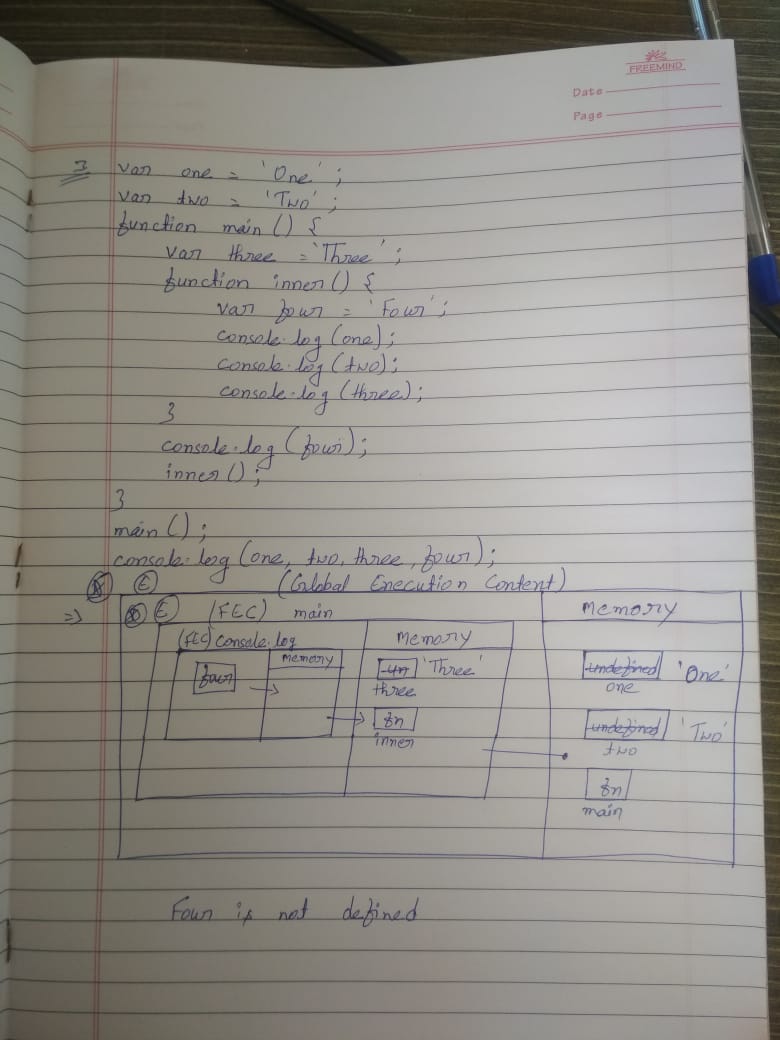 FREEMIND
Date
Page
3 var one = 'One';
var two = 'Two';
function main () {
var three = 'Three';
function inner () {
var four = 'Four';
console.log (one);
console.log (two);
console.log (three);
}
console.log (four);
inner ();
}
main ();
console.log (one, two, three, four);
E (Global Execution Content)
=> E (FEC) main Memory
(FEC) console.log Memory
Memory
four un 'Three' undefined 'One'
three one
fn undefined 'Two'
inner two
fn
main
Four is not defined